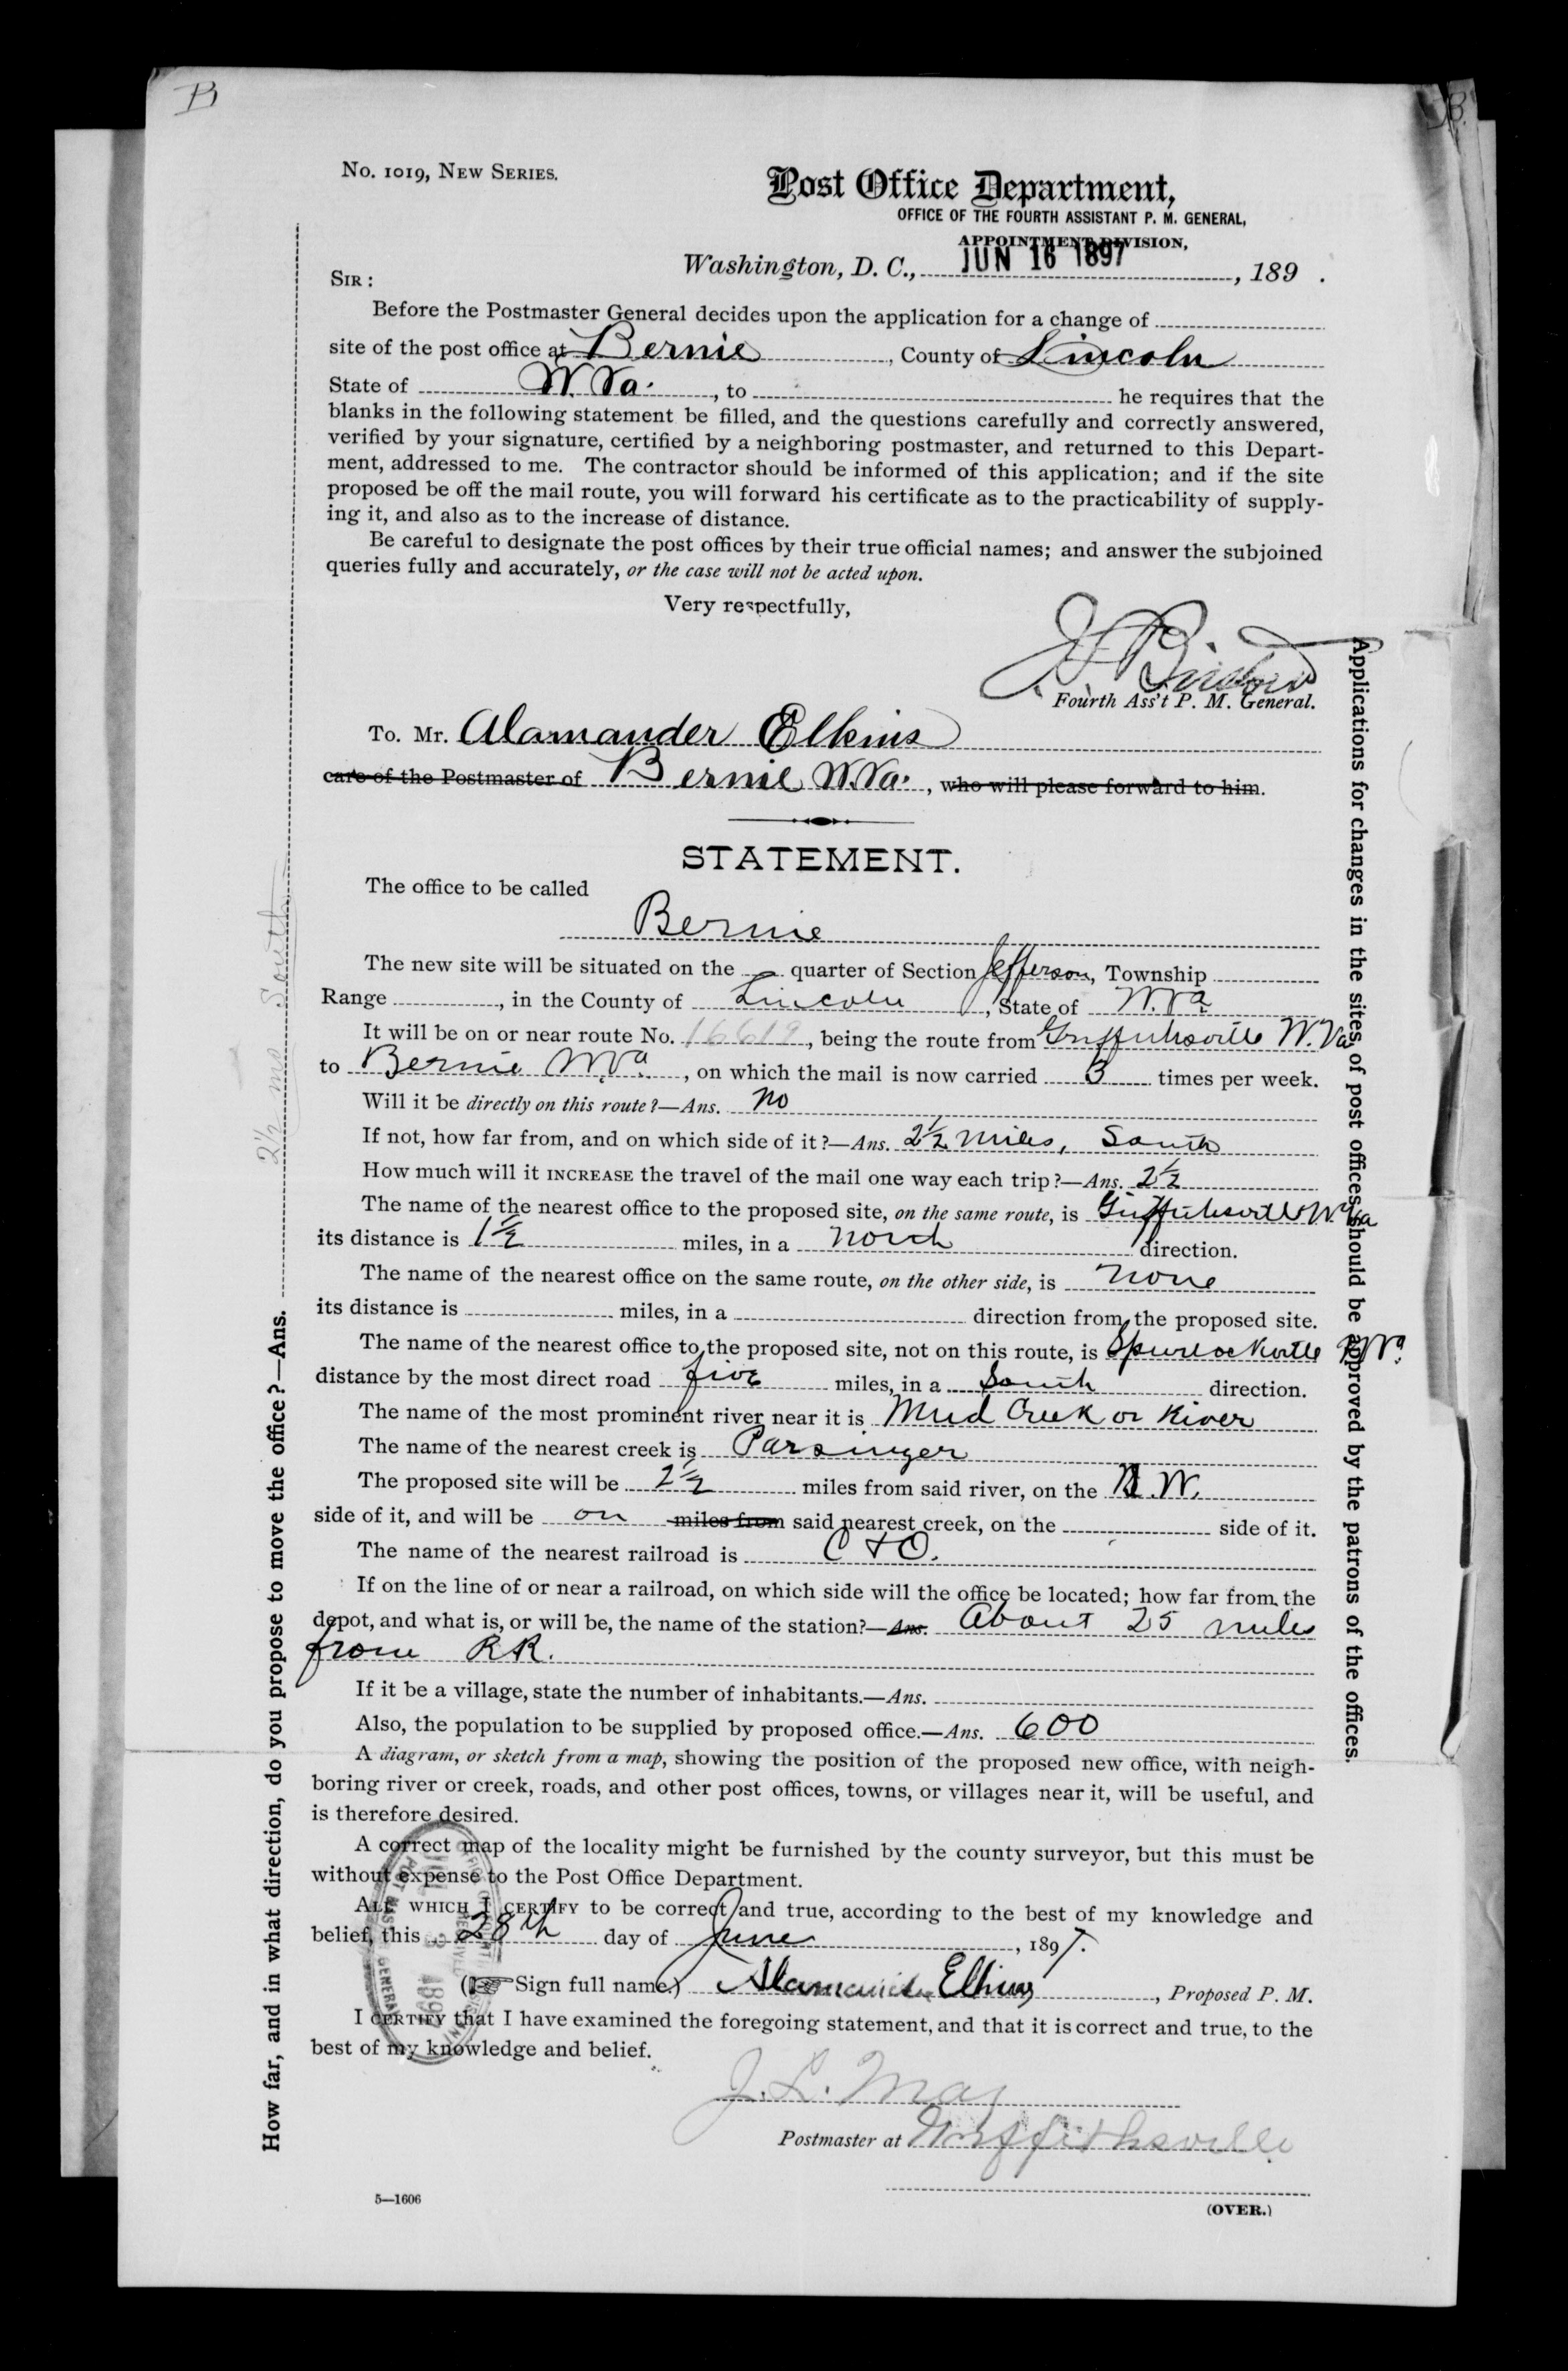 B
B.
No. 1019, New Series.
Post Office Department,
OFFICE OF THE FOURTH ASSISTANT P. M. GENERAL,
APPOINTMENT DIVISION,
Washington, D. C., JUN 16 1897, 189 .
Sir:
Before the Postmaster General decides upon the application for a change of
site of the post office at Bernie, County of Lincoln
State of W. Va., to he requires that the
blanks in the following statement be filled, and the questions carefully and correctly answered,
verified by your signature, certified by a neighboring postmaster, and returned to this Depart-
ment, addressed to me. The contractor should be informed of this application; and if the site
proposed be off the mail route, you will forward his certificate as to the practicability of supply-
ing it, and also as to the increase of distance.
Be careful to designate the post offices by their true official names; and answer the subjoined
queries fully and accurately, or the case will not be acted upon.
Very respectfully,
Fourth Ass't P. M. General.
To. Mr. Alamander Elkins
care of the Postmaster of Bernie W. Va., who will please forward to him.
STATEMENT.
The office to be called
Bernie
The new site will be situated on the quarter of Section Jefferson, Township
Range, in the County of Lincoln, State of W. Va
It will be on or near route No. 16619, being the route from Griffithsville W. Va
to Bernie W. Va., on which the mail is now carried 3 times per week.
Will it be directly on this route?—Ans. No
If not, how far from, and on which side of it?—Ans. 2½ Miles, South
How much will it INCREASE the travel of the mail one way each trip?—Ans. 2½
The name of the nearest office to the proposed site, on the same route, is Griffithsville W. Va
its distance is 1½ miles, in a North direction.
The name of the nearest office on the same route, on the other side, is None
its distance is miles, in a direction from the proposed site.
The name of the nearest office to the proposed site, not on this route, is Spurlockville W. Va.
distance by the most direct road five miles, in a South direction.
The name of the most prominent river near it is Mud Creek or River
The name of the nearest creek is Parsinger
The proposed site will be 2½ miles from said river, on the N. W.
side of it, and will be on miles from said nearest creek, on the side of it.
The name of the nearest railroad is C & O.
If on the line of or near a railroad, on which side will the office be located; how far from the
depot, and what is, or will be, the name of the station?—Ans. About 25 miles
from R.R.
If it be a village, state the number of inhabitants.—Ans.
Also, the population to be supplied by proposed office.—Ans. 600
A diagram, or sketch from a map, showing the position of the proposed new office, with neigh-
boring river or creek, roads, and other post offices, towns, or villages near it, will be useful, and
is therefore desired.
A correct map of the locality might be furnished by the county surveyor, but this must be
without expense to the Post Office Department.
All which I certify to be correct and true, according to the best of my knowledge and
belief, this 28th day of June, 1897.
(Sign full name.) Alamander Elkins, Proposed P. M.
I certify that I have examined the foregoing statement, and that it is correct and true, to the
best of my knowledge and belief.
J. L. May
Postmaster at Griffithsville
5—1606
(OVER.)
How far, and in what direction, do you propose to move the office?—Ans. 2½ ms South
Applications for changes in the sites of post offices should be approved by the patrons of the offices.